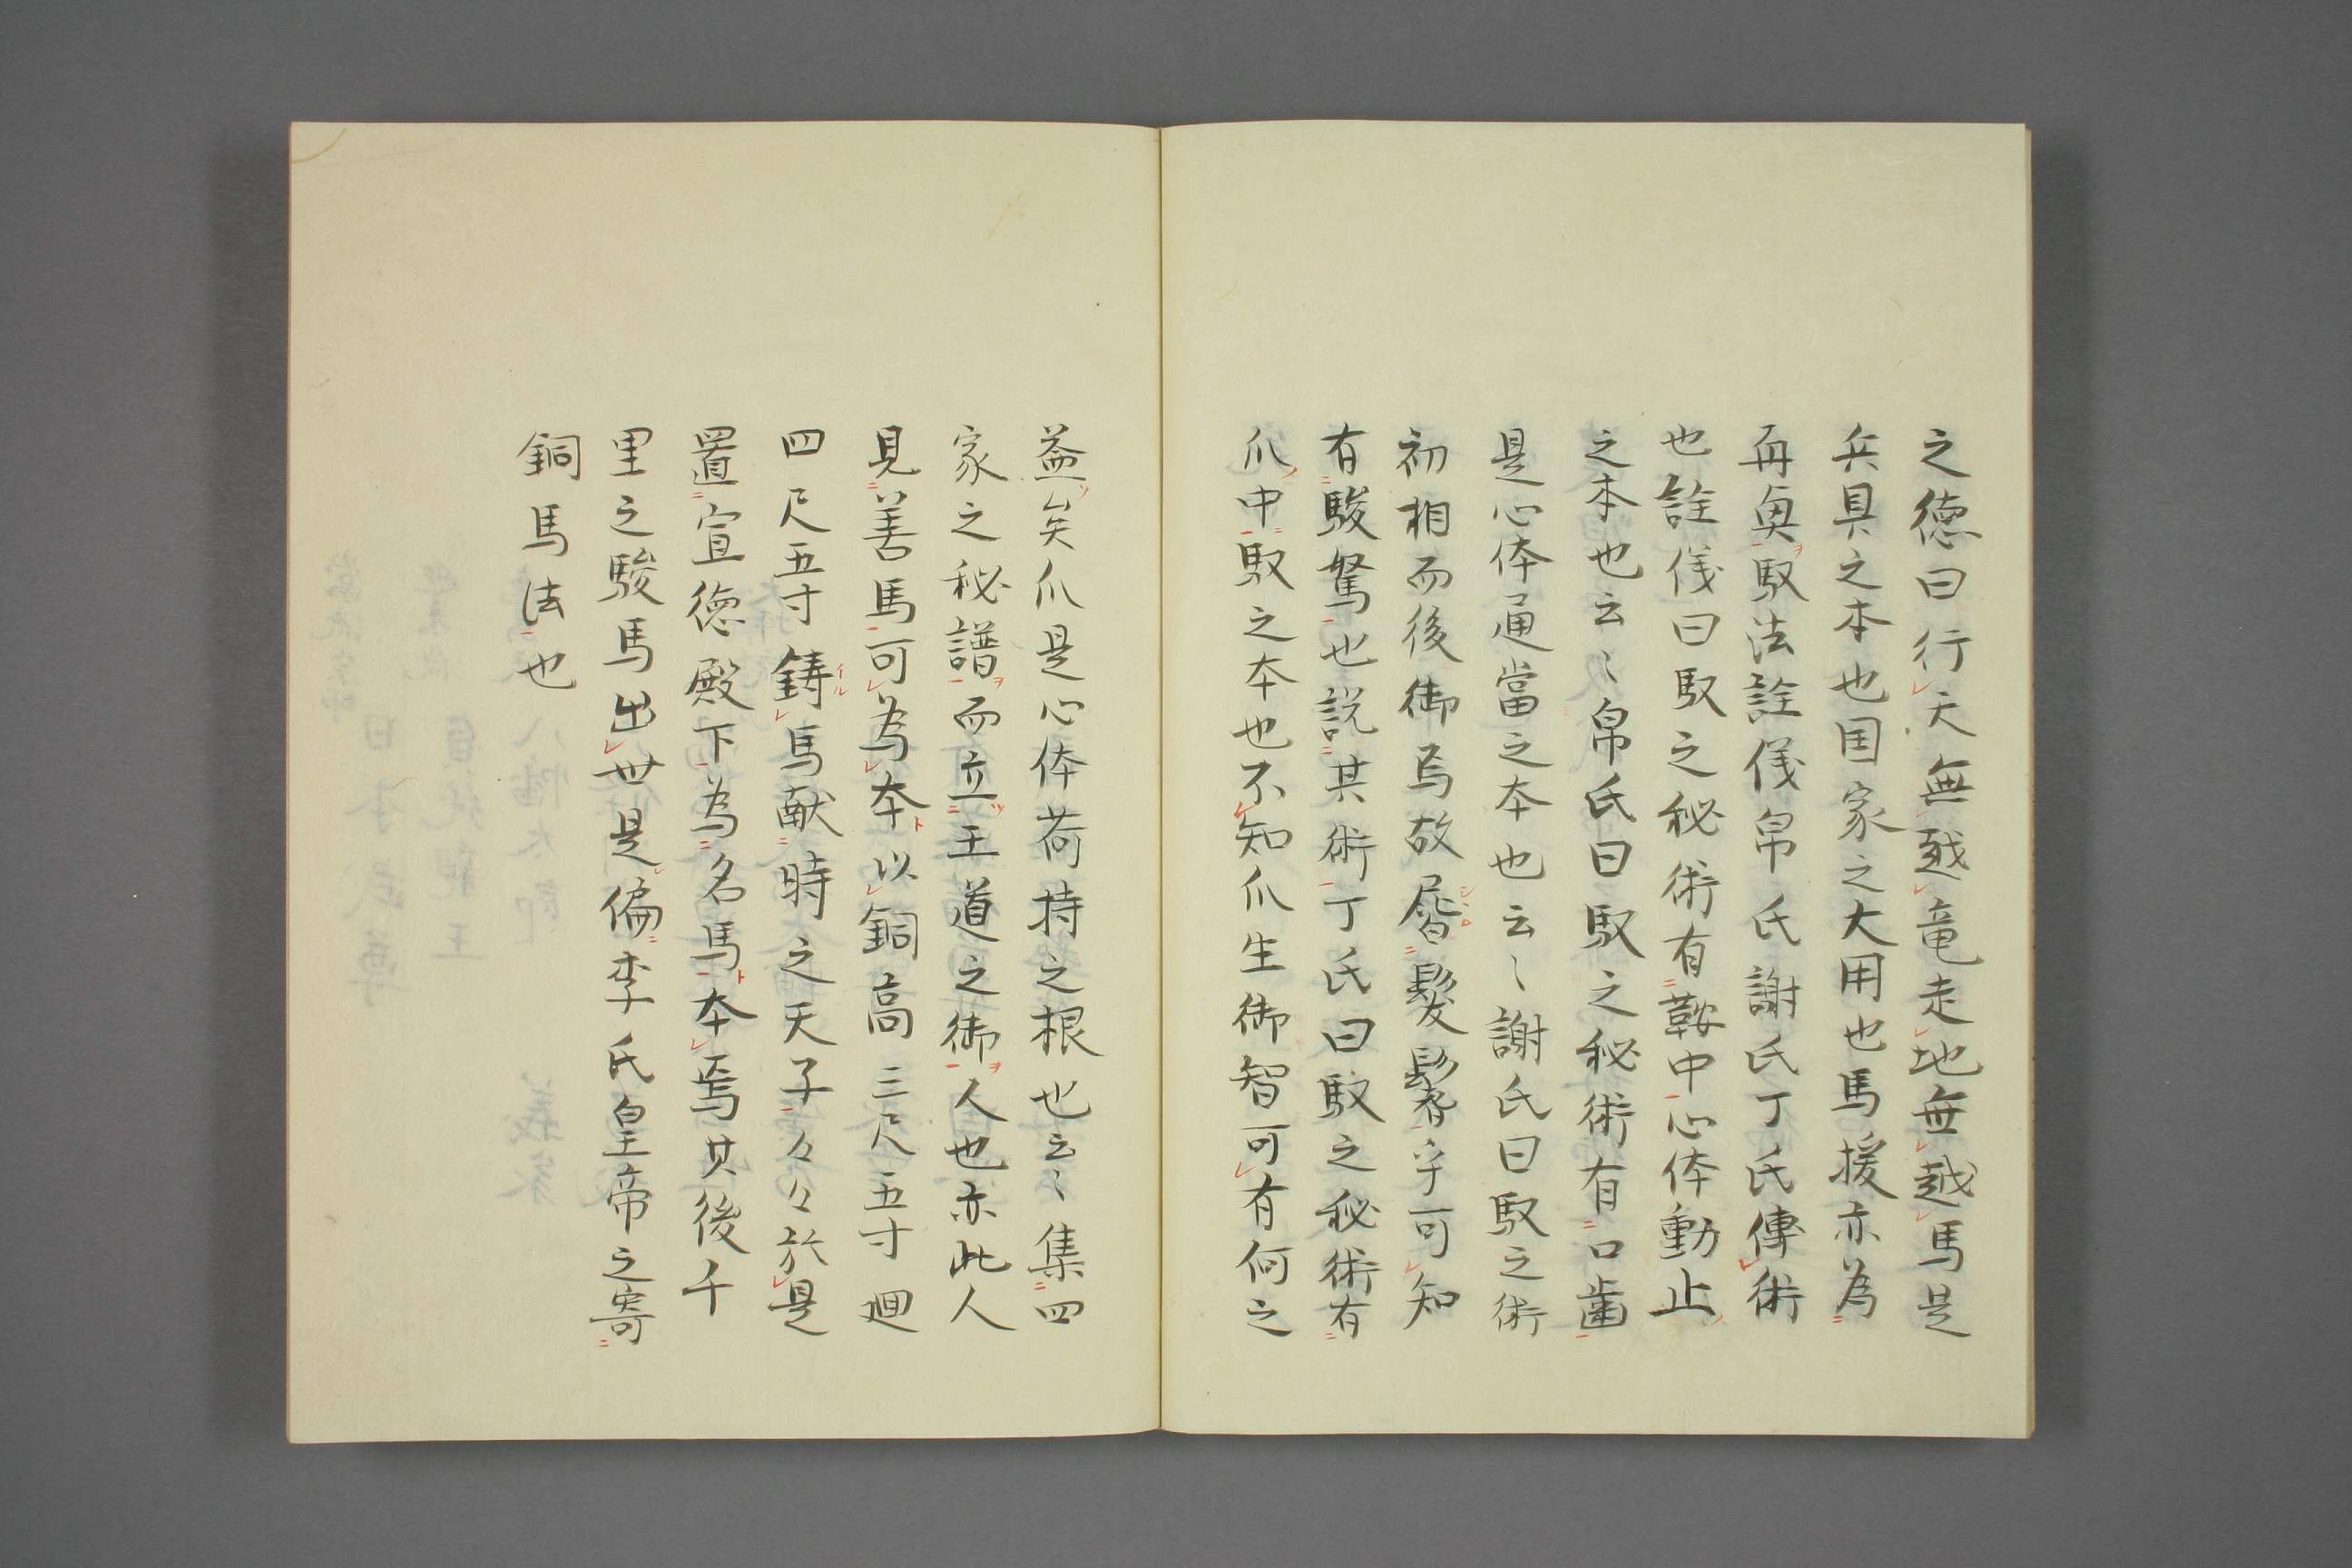 之徳曰行天無越竜走地無越馬是
兵具之本也国家之大用也馬援亦為
再奥馭法詮儀帛氏謝氏丁氏傳術
也詮儀曰馭之秘術有鞍中心体動止
之本也云々帛氏曰馭之秘術有口歯
是心体通當之本也云々謝氏曰馭之術
初相而後御焉故脣髪鬐乎可知
有駿駑也説其術丁氏曰馭之秘術有
爪中馭之本也不知爪生御智可有何之
益矣爪是心体荷持之根也云々集四
家之秘譜而立王道之御人也亦此人
見善馬可為本以銅高三尺五寸廻
四尺五寸鋳馬献時之天子々々於是
置宣徳殿下為名馬本焉其後千
里之駿馬出世是偏李氏皇帝之寄
銅馬法也